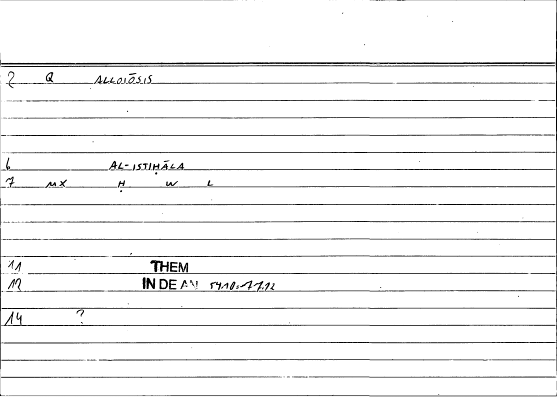 2 Q ALLOIŌSIS
6 AL-ISTIḤĀLA
7 MX Ḥ W L
11 THEM
12 IN DE AN 5410:11.12
14 ?